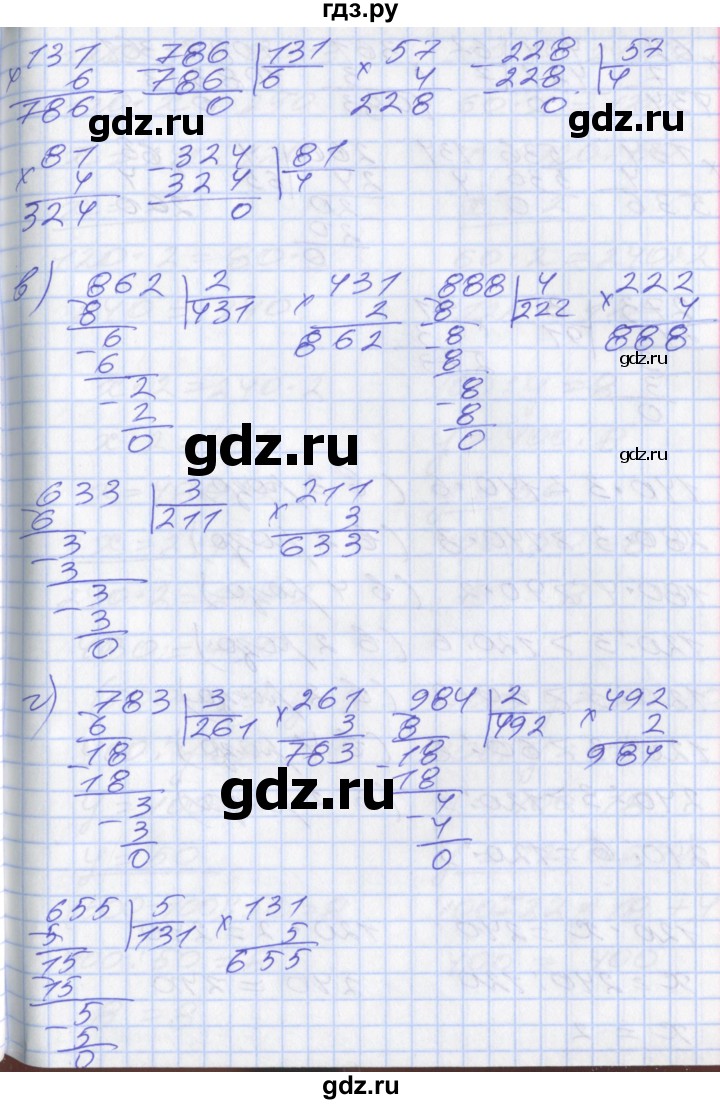 гдз.ру
131 786 131 57 228 57
× 6 - 786 6 × 4 - 228 4
786 0 228 0
gdz.ru gdz.ru
81 324 81
× 4 - 324 4
324 0
в) 862 2 431 888 4 222
- 8 431 × 2 - 8 222 × 4
6 862 8 888
- 6 - 8
gdz.ru
2 8
- 2 - 8
0 0
gdz.ru gdz.ru
633 3 211
- 6 211 × 3
3 633
- 3
3
- 3
0
г) 783 3 261 984 2 492
- 6 261 × 3 - 8 492 × 2
18 783 18 984
- 18 - 18
gdz.ru gdz.ru
3 4
- 3 - 4
0 0
655 5 131
- 5 131 × 5
15 655
- 15
5
- 5
0
gdz.ru